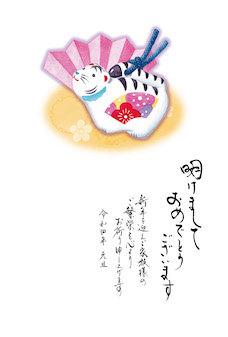 明けまして
おめでとう
ございます
新年を迎えご家族様の
ご繁栄を心より
お祈り申し上げます
令和四年 元旦